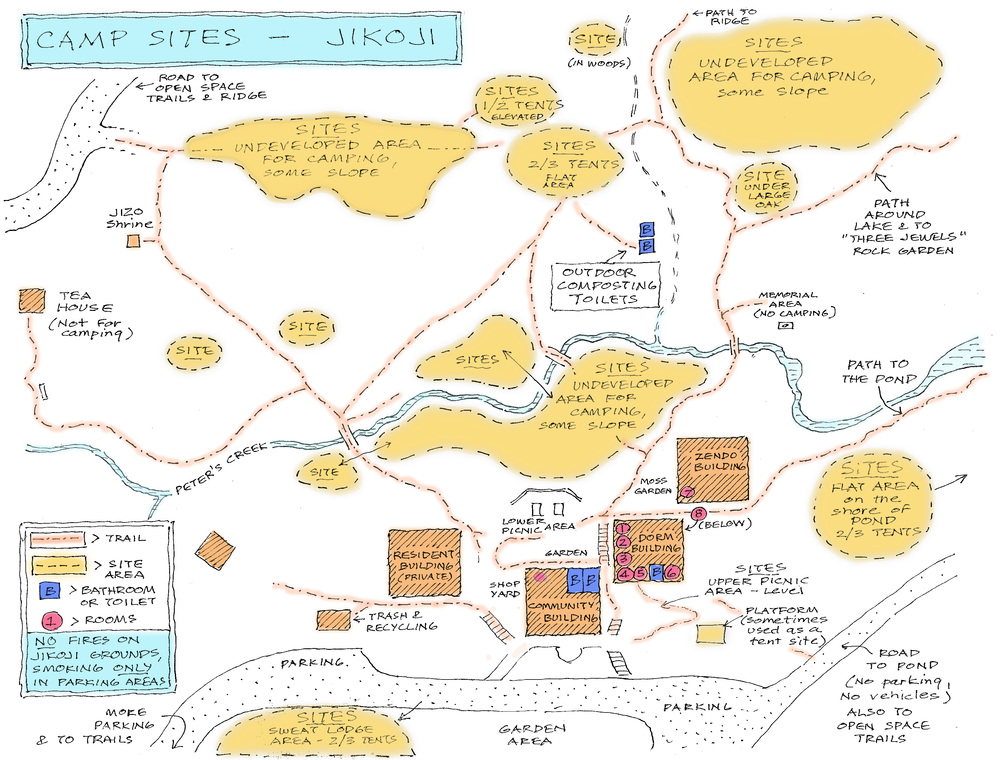 CAMP SITES – JIKOJI
← PATH TO
RIDGE
SITE
(IN WOODS)
SITES
UNDEVELOPED
AREA FOR CAMPING,
some slope
ROAD TO
OPEN SPACE
TRAILS & RIDGE
SITES
1/2 TENTS
ELEVATED
SITES
UNDEVELOPED AREA
FOR CAMPING,
SOME SLOPE
SITES
2/3 TENTS
FLAT
AREA
SITE
UNDER
LARGE
OAK
JIZO
Shrine
PATH
AROUND
LAKE & TO
"THREE JEWELS"
ROCK GARDEN
B
B
OUTDOOR
COMPOSTING
TOILETS
TEA
HOUSE
(Not for
camping)
MEMORIAL
AREA
(NO CAMPING)
SITE
SITE
SITES
SITES
UNDEVELOPED
AREA FOR
CAMPING,
SOME SLOPE
PATH TO
THE POND
PETER'S CREEK
SITE
ZENDO
BUILDING
MOSS
GARDEN
7
SITES
FLAT AREA
on the
shore of
POND
2/3 TENTS
8
(BELOW)
LOWER
PICNIC AREA
1
2
3
4
5
B
6
DORM
BUILDING
GARDEN
RESIDENT
BUILDING
(PRIVATE)
SHOP
YARD
B
B
COMMUNITY
BUILDING
SITES
UPPER PICNIC
AREA - Level
PLATFORM
(sometimes
used as a
tent site)
TRASH &
RECYCLING
> TRAIL
> SITE
AREA
B > BATHROOM
OR TOILET
1 > ROOMS
NO FIRES ON
JIKOJI GROUNDS,
SMOKING ONLY
IN PARKING AREAS
PARKING
PARKING
ROAD
TO POND
(No parking,
No vehicles)
ALSO TO
OPEN SPACE
TRAILS
MORE
PARKING
& TO TRAILS
SITES
SWEAT LODGE
AREA - 2/3 TENTS
GARDEN
AREA